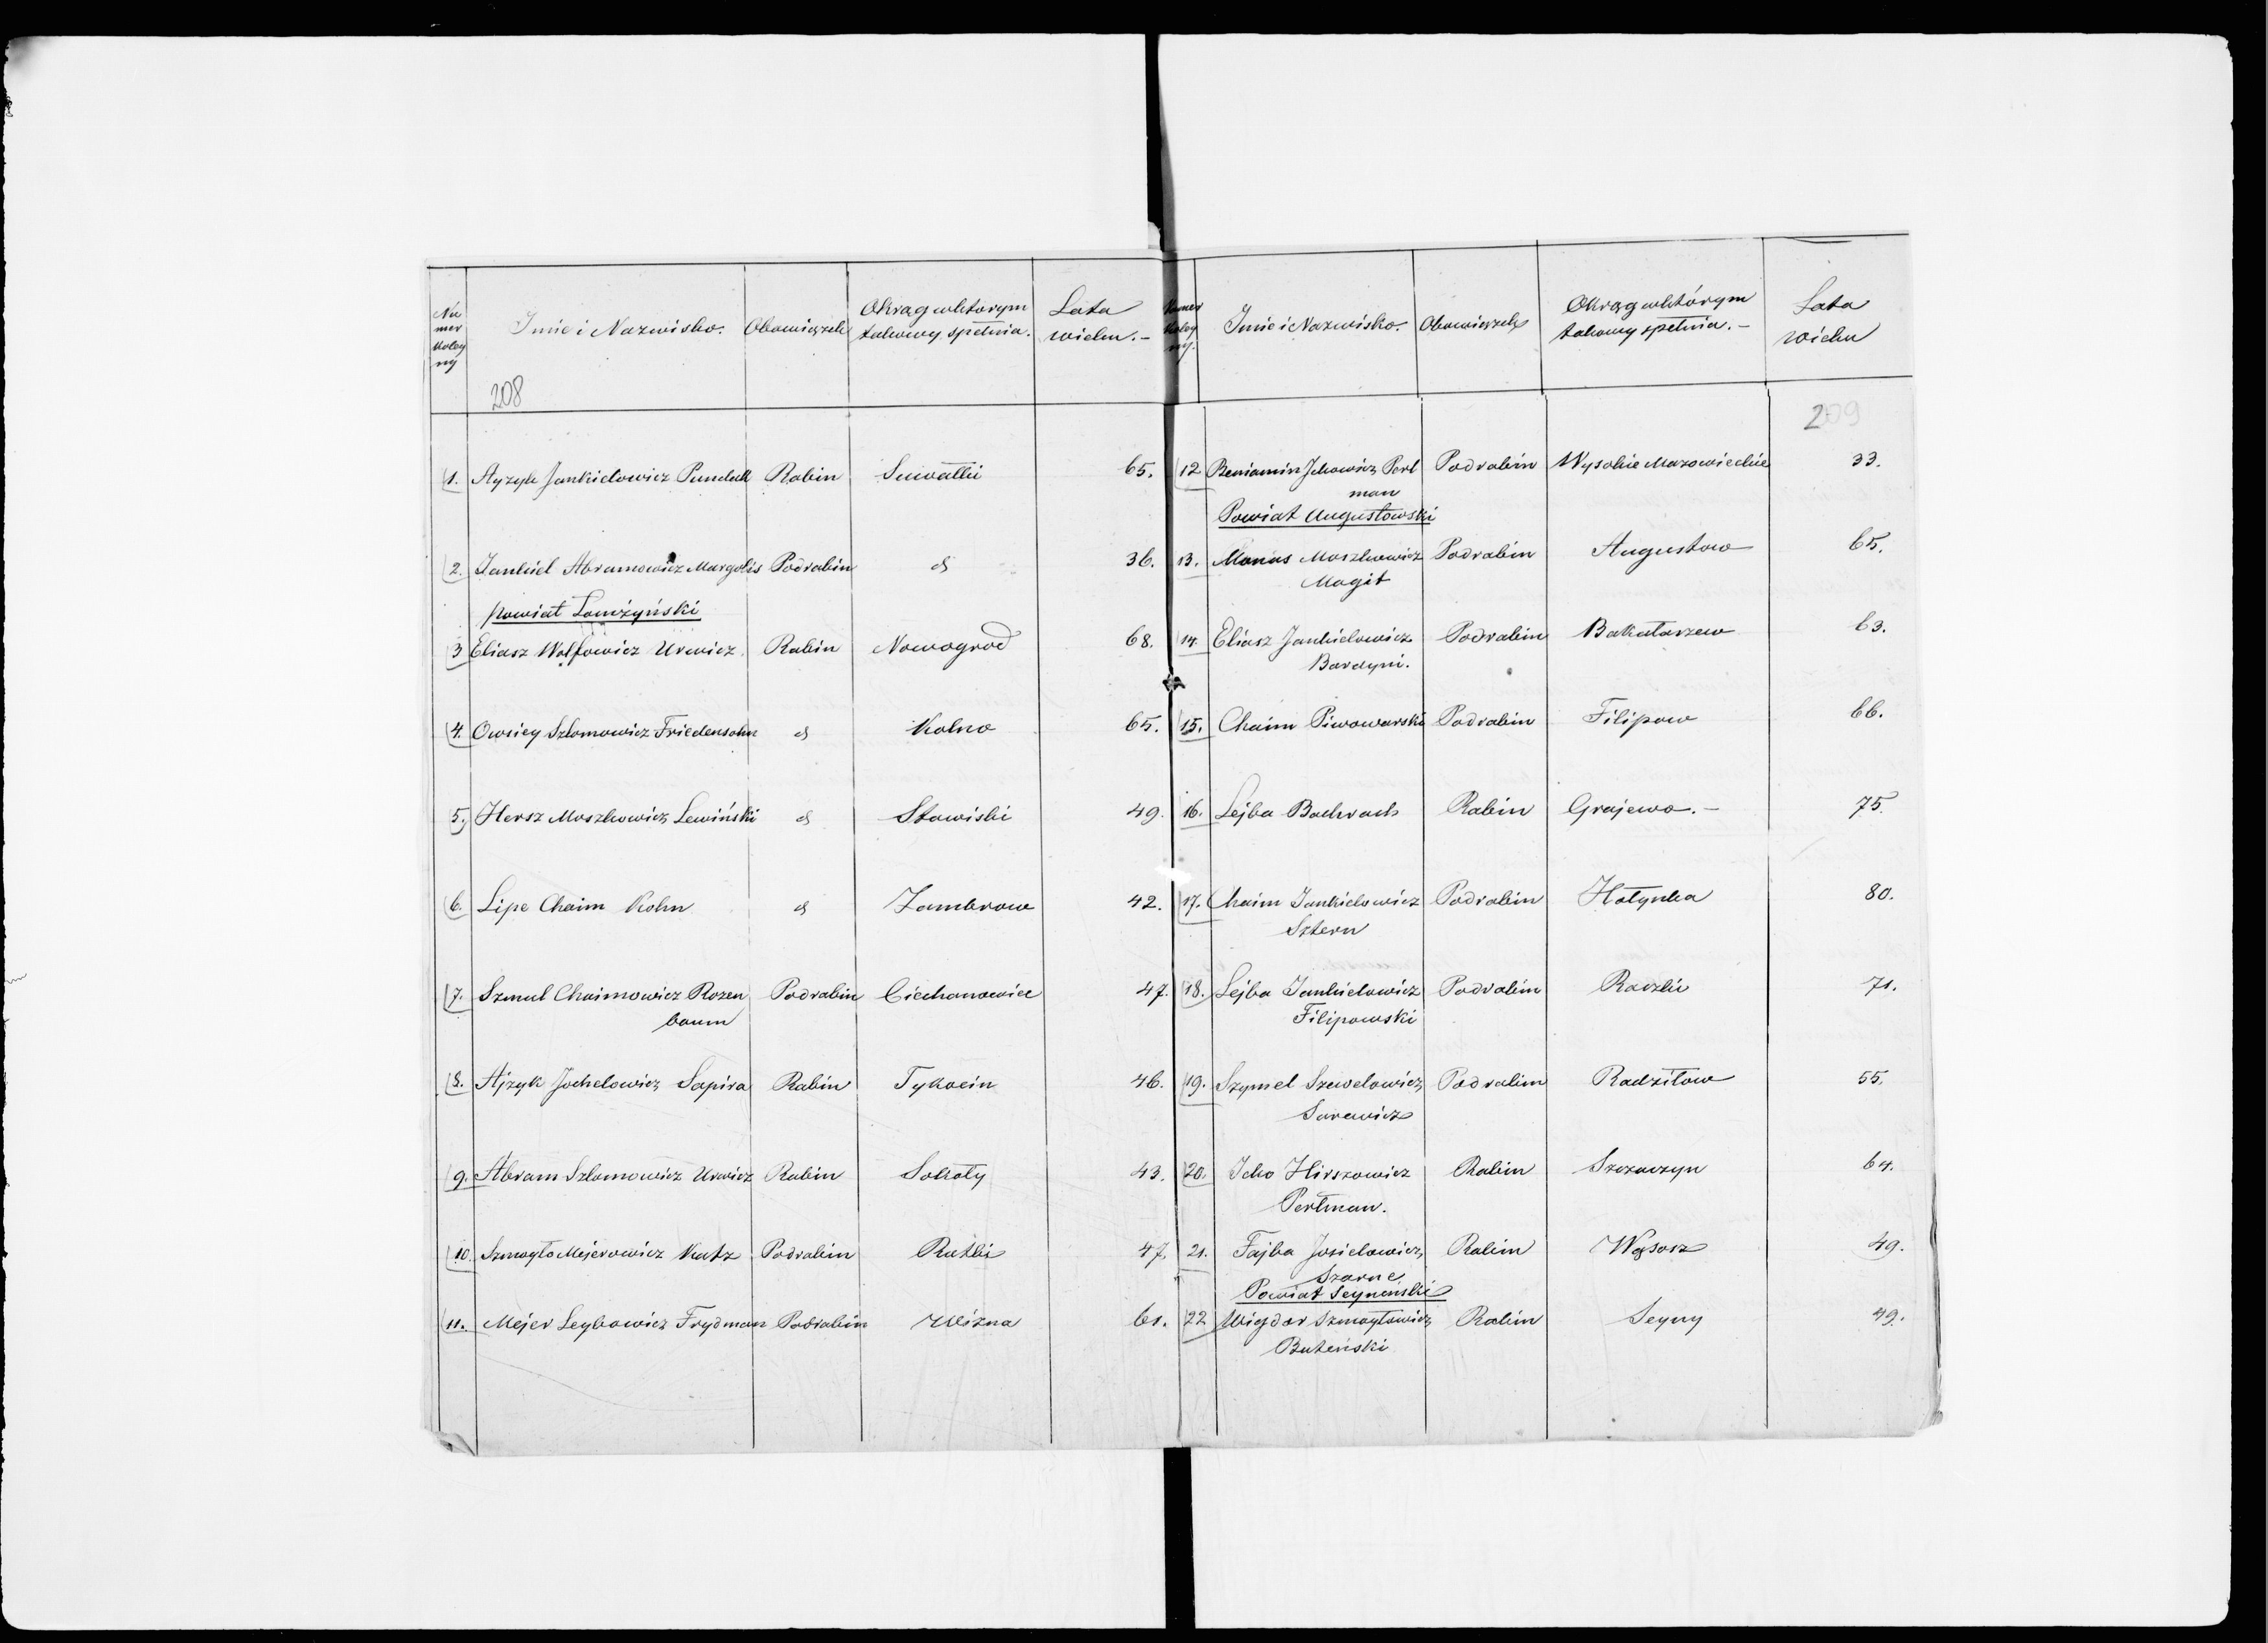 Numer kolejny | Imie i Nazwisko. | Obowiązek | Okrąg w którym takowy spełnia. | Lata wieku.-
208
1. Ayzyk Jankielowicz Pundek | Rabin | Suwałki | 65.
2. Jankiel Abramowicz Margolis | Podrabin | d | 36.
Powiat Łomżyński
3 Eliasz Wolfowicz Urwicz. | Rabin | Nowogrod | 68.
4. Owsiey Szlomowicz Friedensohn | d | Kolno | 65.
5. Hersz Moszkowicz Lewiński | d | Stawiski | 49.
6. Lipe Chaim Kohn | d | Zambrow | 42.
7. Szmul Chaimowicz Rozen | Podrabin | Ciechanowiec | 47.
baum
8. Ajzyk Jochelowicz Sapira | Rabin | Tykocin | 46.
9. Abram Szlomowicz Urwicz | Rabin | Sokoły | 43.
10. Szmoyło Mejerowicz Katz | Podrabin | Rutki | 47.
11. Mejer Leybowicz Frydman | Podrabin | Wizna | 61.
Numer kolejny. | Imie i Nazwisko. | Obowiązek | Okrąg w którym takowy spełnia.- | Lata wieku
209
12 Beniamin Ickowicz Perl | Podrabin | Wysokie Mazowieckie | 33.
man
Powiat Augustowski
13. Manas Moszkowicz | Podrabin | Augustow | 65.
Magit
14. Eliasz Jankielowicz | Podrabin | Bakałarzew | 63.
Bardyni.
15. Chaim Piwowarski | Podrabin | Filipow | 66.
16. Lejba Bachrach | Rabin | Grajewo.- | 75.
17. Chaim Jankielowicz | Podrabin | Hołynka | 80.
Sztern
18. Lejba Jankielowicz | Podrabin | Raczki | 71.
Filipowski
19. Szymel Szewelowicz | Podrabin | Radziłow | 55.
Surewicz
20. Icko Hirszowicz | Rabin | Szczuczyn | 64.
Perlman.
21. Fajba Josielowicz | Rabin | Wąsosz | 49.
Szarne
Powiat Seyneński
22 Wigdor Szmoyłowicz | Rabin | Seyny | 49.
Buteński